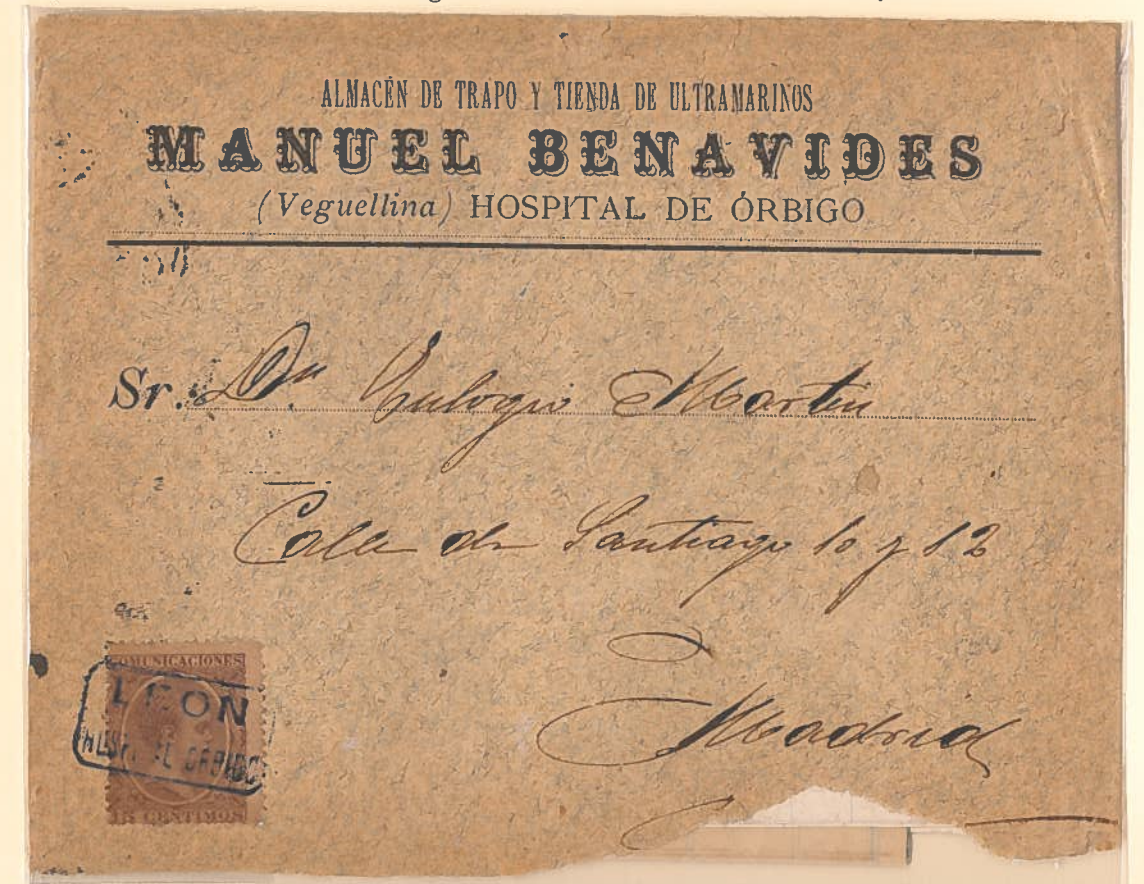 ALMACÉN DE TRAPO Y TIENDA DE ULTRAMARINOS
MANUEL BENAVIDES
(Veguellina) HOSPITAL DE ÓRBIGO
Sr. Dn Eulogio Martin
Calle de Santiago 10 y 12
Madrid
COMUNICACIONES
LEON
HOSP. DE ORBIGO
15 CENTIMOS